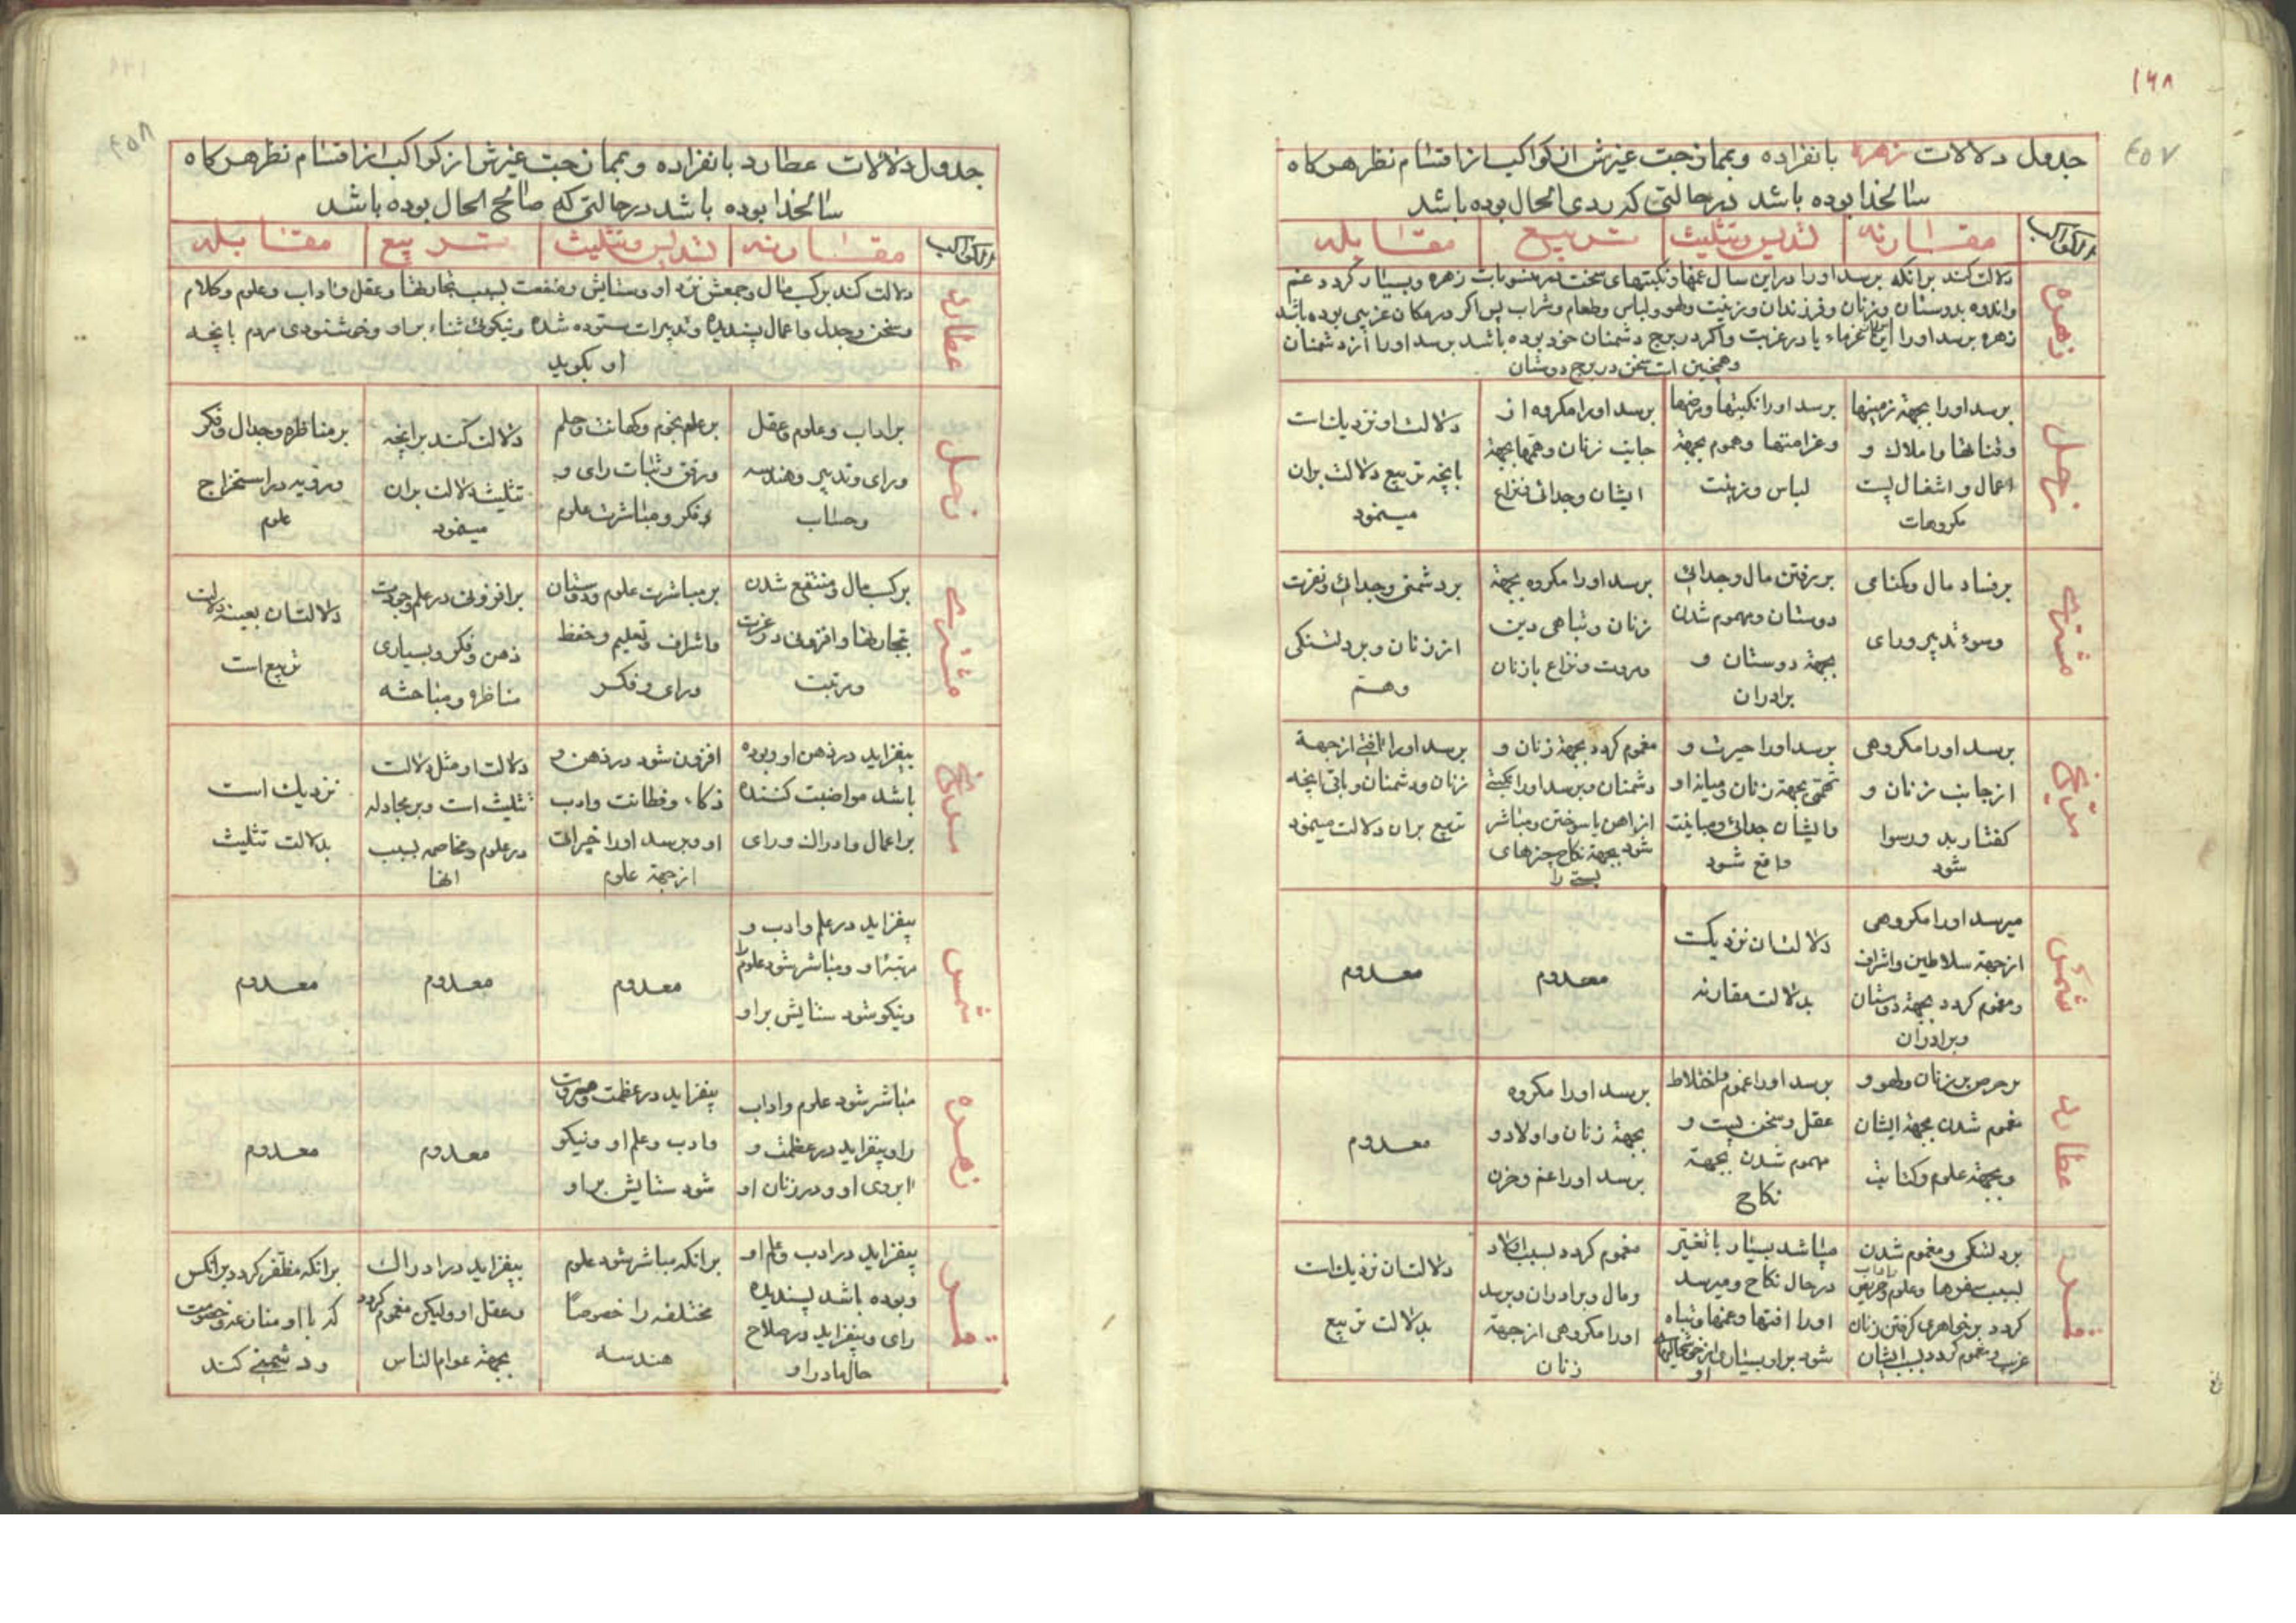 ۱۶۸
۴۵۷
جدول دلالات زهره بانفراده و بممازجت غیرش از کواکب از اقسام نظر هرکاه
سالخدا بوده باشد در حالتی که ردی الحال بوده باشد
الکواکب
مقارنه
تسدیس و تثلیث
تربیع
مقابله
زهره
دلالت کند برانکه برسد اورا دراین سال غمها ونکبتهای سخت در منسوبات زهره وبسیار کردد غم
واندوه بدوستان وزنان وفرزندان وزینت ولهو ولباس وطعام وشراب پس اکر در مکان غریبی بوده باشد
زهره برسد اورا این از غرباء یا در غربت واکر در برج دشمنان خود بوده باشد برسد اورا از دشمنان
وهمچنین است سخن در برج دوستان
زحل
برسد اورا بجهة زمینها
وقناتها واملاک و
اعمال و اشغال پست
مکروهات
برسد اورا نکبتها ومرضها
وغرامتها وهموم بجهة
لباس وزینت
برسد اورا مکروه از
جانب زنان وهمها بجهة
ایشان وجدائی ونزاع
دلالت او نزدیک است
بانچه تربیع دلالت بران
مینمود
مشتری
برفساد مال وکمنامی
وسوء تدبیر ورای
بررفتن مال وجدائی
دوستان ومهموم شدن
بجهة دوستان و
برادران
برسد اورا مکروه بجهة
زنان وتباهی دین
ومروت ونزاع بازنان
بردشمنی وجدائی ونفرت
از زنان وبر دلتنکی
وهم
مریخ
برسد اورا مکروهی
از جانب زنان و
کفتار بد ورسوا
شود
برسد اورا حیرت و
تهمتی بجهة زنان ومیانه او
وایشان جدائی ومباینت
واقع شود
مغموم کردد بجهة زنان و
دشمنان وبرسد اورا نکبتی
از اهن یا سوختن ومباشر
شود بجهة نکاح چیزهای
پستی را
برسد اورا افتی از جهة
زنان ودشمنان وباقی انچه
تربیع بران دلالت مینمود
شمس
میرسد اورا مکروهی
از جهة سلاطین واشراف
ومغموم کردد بجهة دوستان
وبرادران
دلالتشان نزدیکست
بدلالت مقارنه
معدوم
معدوم
عطارد
برحرص بر زنان ولهو و
مغموم شدن بجهة ایشان
وبجهة علوم وکتابت
برسد اورا غموم واختلاط
عقل وسخن پست و
مهموم شدن بجهة
نکاح
برسد اورا مکروه
بجهة زنان واولاد و
برسد اورا غم وحزن
معدوم
قمر
بر دلتنکی ومغموم شدن
بسبب سفرها وعلوم واداب وحریص
کردد بر خواهری کرفتن زنان
غریب ومغموم کردد بسبب ایشان
میباشد بسیار باتغییر
در حال نکاح ومیرسد
اورا افتها وغمها وتباه
شود براو بسیاری از خوشحالیهای
او
مغموم کردد بسبب اولاد
ومال وبرادران وبرسد
اورا مکروهی از جهة
زنان
دلالتشان نزدیک است
بدلالت تربیع
۴۵۸
جدول دلالات عطارد بانفراده و بممازجت غیرش از کواکب از اقسام نظر هرکاه
سالخدا بوده باشد در حالتی که صالح الحال بوده باشد
الکواکب
مقارنه
تسدیس وتثلیث
تربیع
مقابله
عطارد
دلالت کند برکسب مال وجمعش نزد او وستایش ومنفعت بسبب تجارتها وعقل واداب وعلوم وکلام
وسخن وجدل واعمال پسندیده وتدبیرات ستوده شده ونیکوئی ثناء براو وخوشنودی مردم بانچه
او بکوید
زحل
براداب وعلوم وعقل
ورای وتدبیر وهندسه
وحساب
برعلم نجوم وکهانت وحلم
ورفق وثبات رای و
وفکر ومباشرت علوم
دلالت کند برانچه
تثلیث دلالت بران
مینمود
برمناظره وجدال وفکر
ورویه در استخراج
علوم
مشتری
برکسب مال ومنتفع شدن
بتجارتها وافزونی در عزت
ومرتبت
برمباشرت علوم ودوستان
واشراف وتعلیم وحفظ
ورای وفکر
برافزونی در علم وجودت
ذهن وفکر وبسیاری
مناظره ومباحثه
دلالتشان بعینه دلالت
تربیع است
مریخ
بیفزاید در ذهن او وبوده
باشد مواظبت کننده
براعمال وادراک ورای
افزون شود در ذهن و
ذکاء وفطانت وادب
او وبرسد اورا خیراتی
از جهة علوم
دلالت او مثل دلالت
تثلیث است وبر مجادله
در علوم ومخاصمه بسبب
انها
نزدیک است
بدلالت تثلیث
شمس
بیفزاید در علم وادب و
مرتبه او ومباشر شود علوم را
ونیکو شود ستایش براو
معدوم
معدوم
معدوم
زهره
مباشر شود علوم واداب
را وبیفزاید در عظمت و
ابروی او ودر زنان او
بیفزاید در عظمت ومروت
وادب وعلم او ونیکو
شود ستایش براو
معدوم
معدوم
قمر
بیفزاید در ادب وعلم او
وبوده باشد پسندیده
رای وبیفزاید در صلاح
حال مادر او
برانکه مباشر شود علوم
مختلفه را خصوصاً
هندسه
بیفزاید در ادراک
وعقل او ولیکن مغموم کردد
بجهة عوام الناس
برانکه مظفر کردد برانکس
که با او منازعه وخصومت
ودشمنی کند